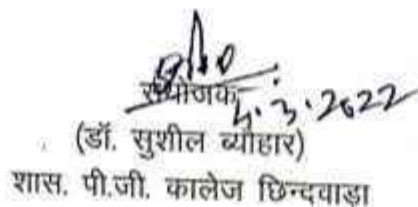 संयोजक
4.3.2022
(डॉ. सुशील ब्यौहार)
शास. पी.जी. कालेज छिन्दवाड़ा